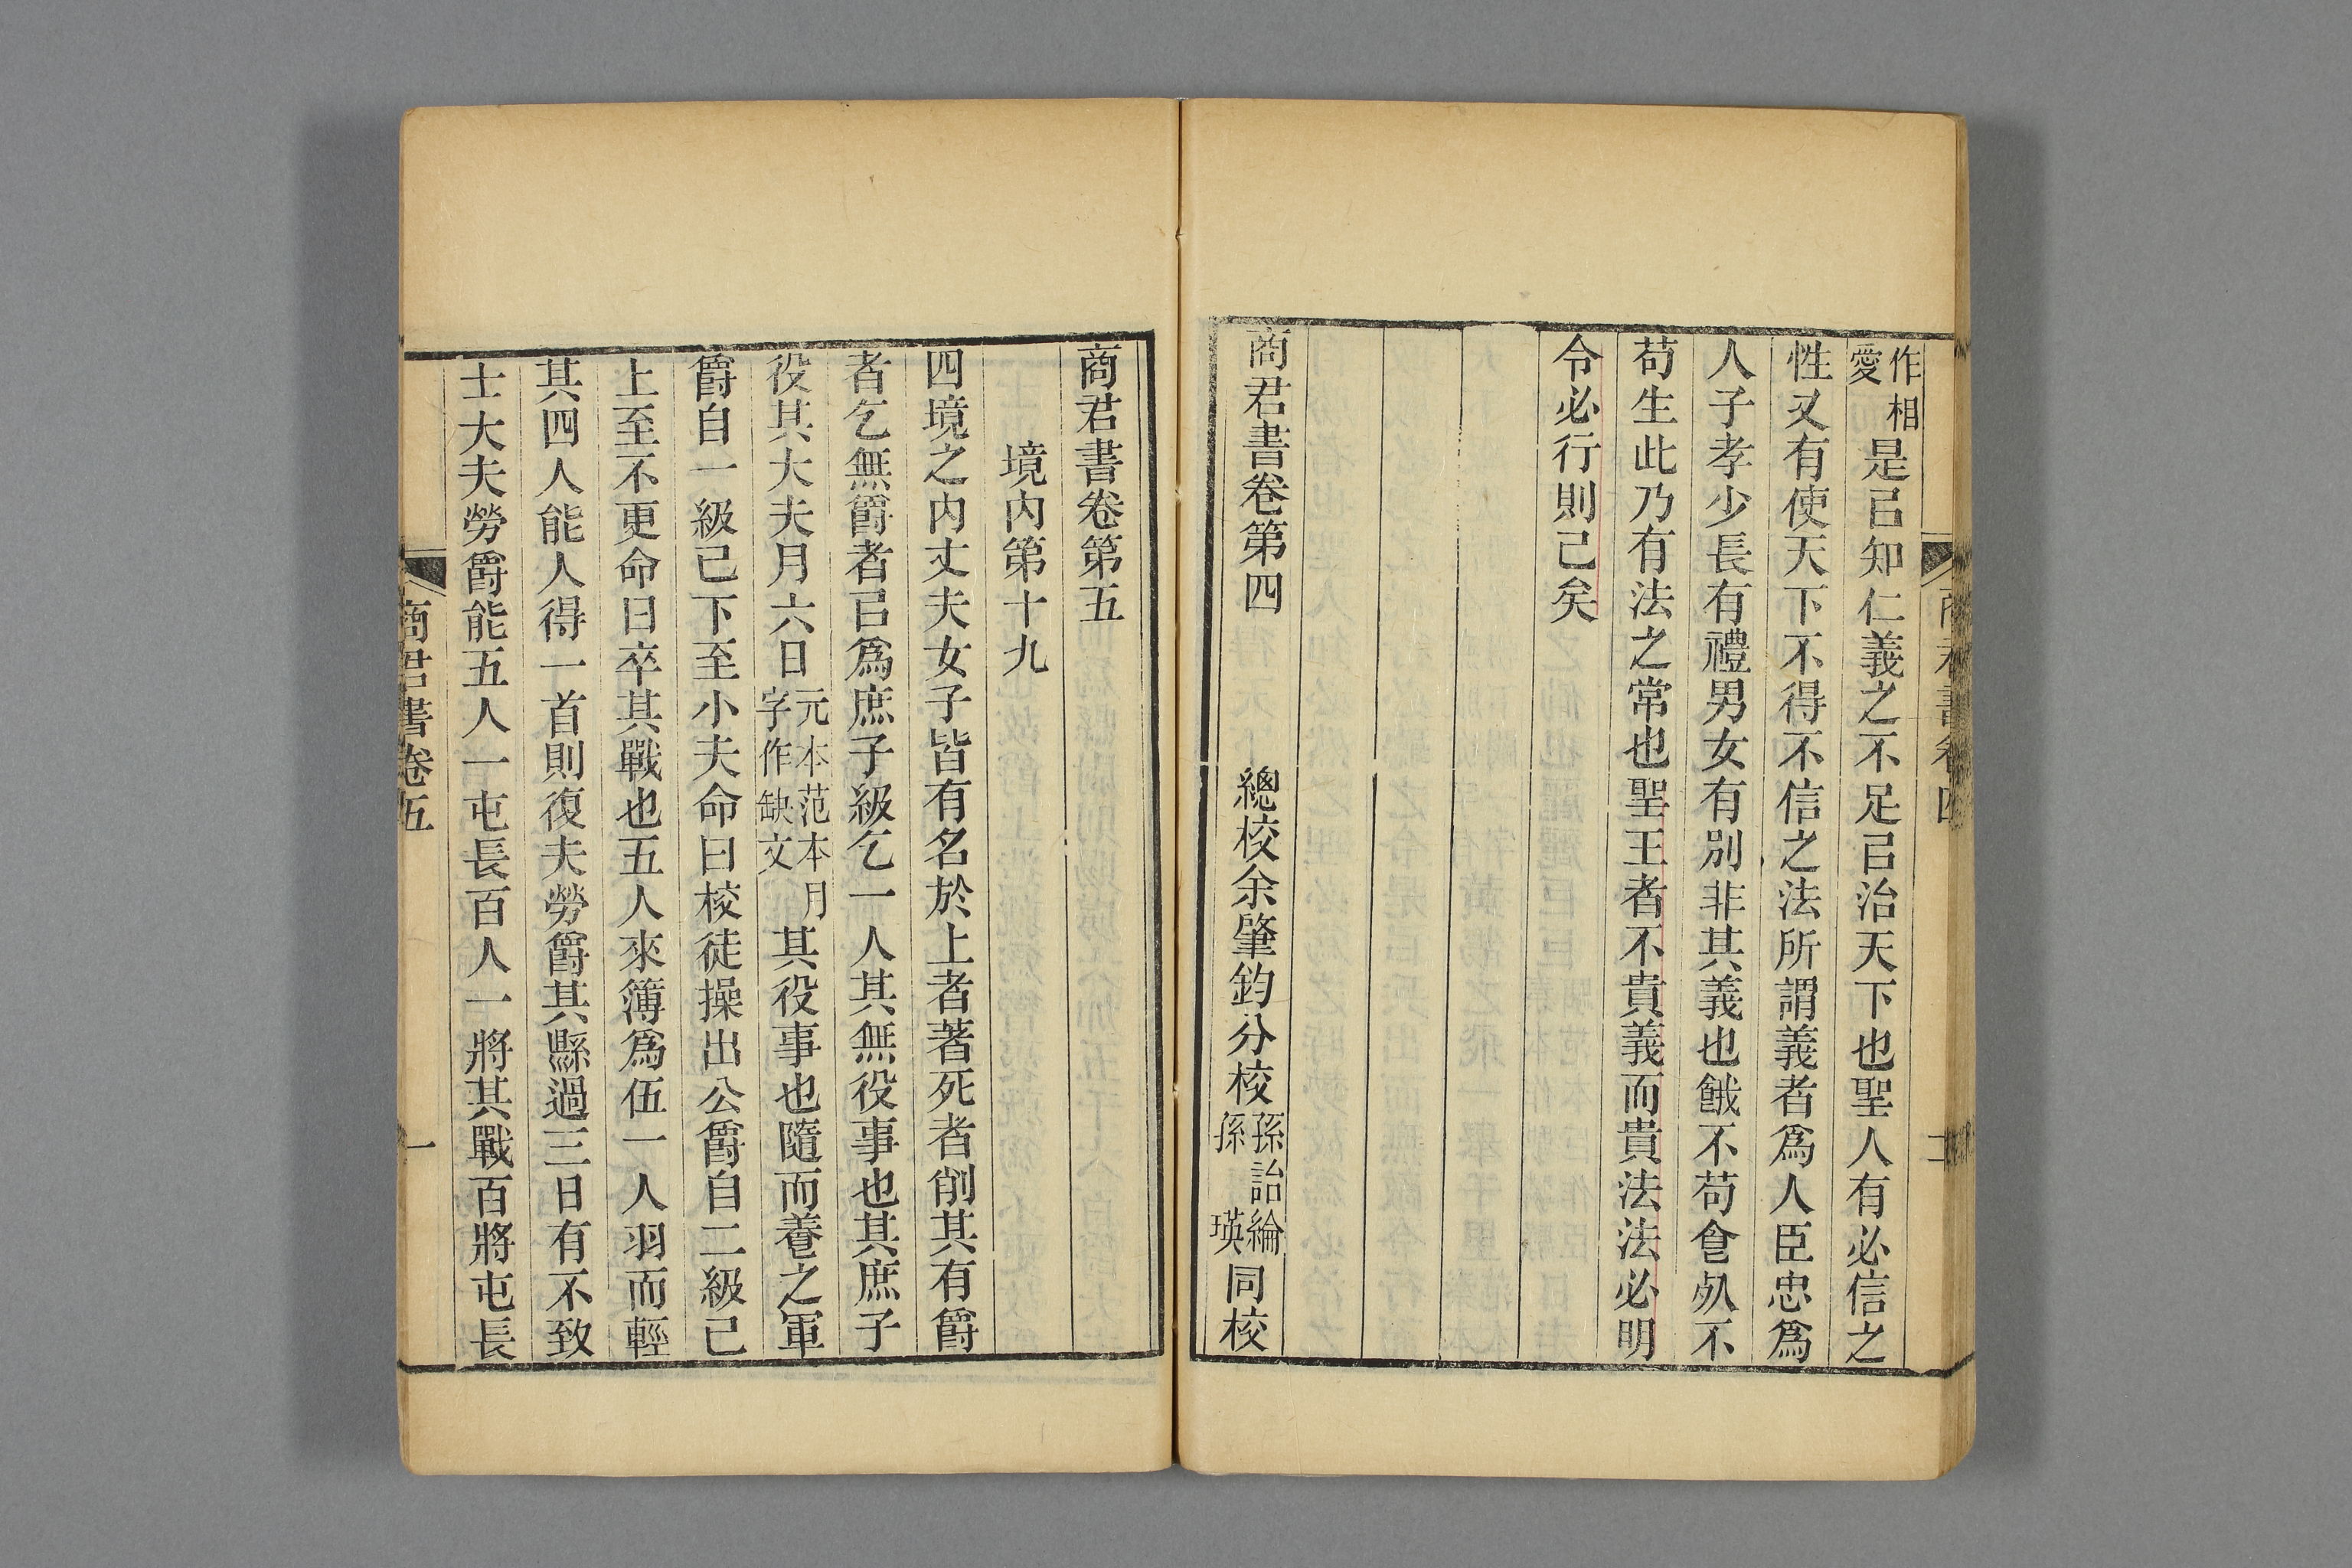 作相愛是㠯知仁義之不足㠯治天下也聖人有必信之
性又有使天下不得不信之法所謂義者爲人臣忠爲
人子孝少長有禮男女有別非其義也餓不苟食死不
苟生此乃有法之常也聖王者不貴義而貴法法必明
令必行則已矣
商君書卷第四 總校余肇鈞分校孫詒綸孫瑛同校
商君書卷第五
境內第十九
四境之內丈夫女子皆有名於上者著死者削其有爵
者乞無爵者㠯爲庶子級乞一人其無役事也其庶子
役其大夫月六日元本范本月字作缺文其役事也隨而養之軍
爵自一級已下至小夫命曰校徒操出公爵自二級已
上至不更命曰卒其戰也五人來簿爲伍一人羽而輕
其四人能人得一首則復夫勞爵其縣過三日有不致
士大夫勞爵能五人一屯長百人一將其戰百將屯長
商君書卷五
一